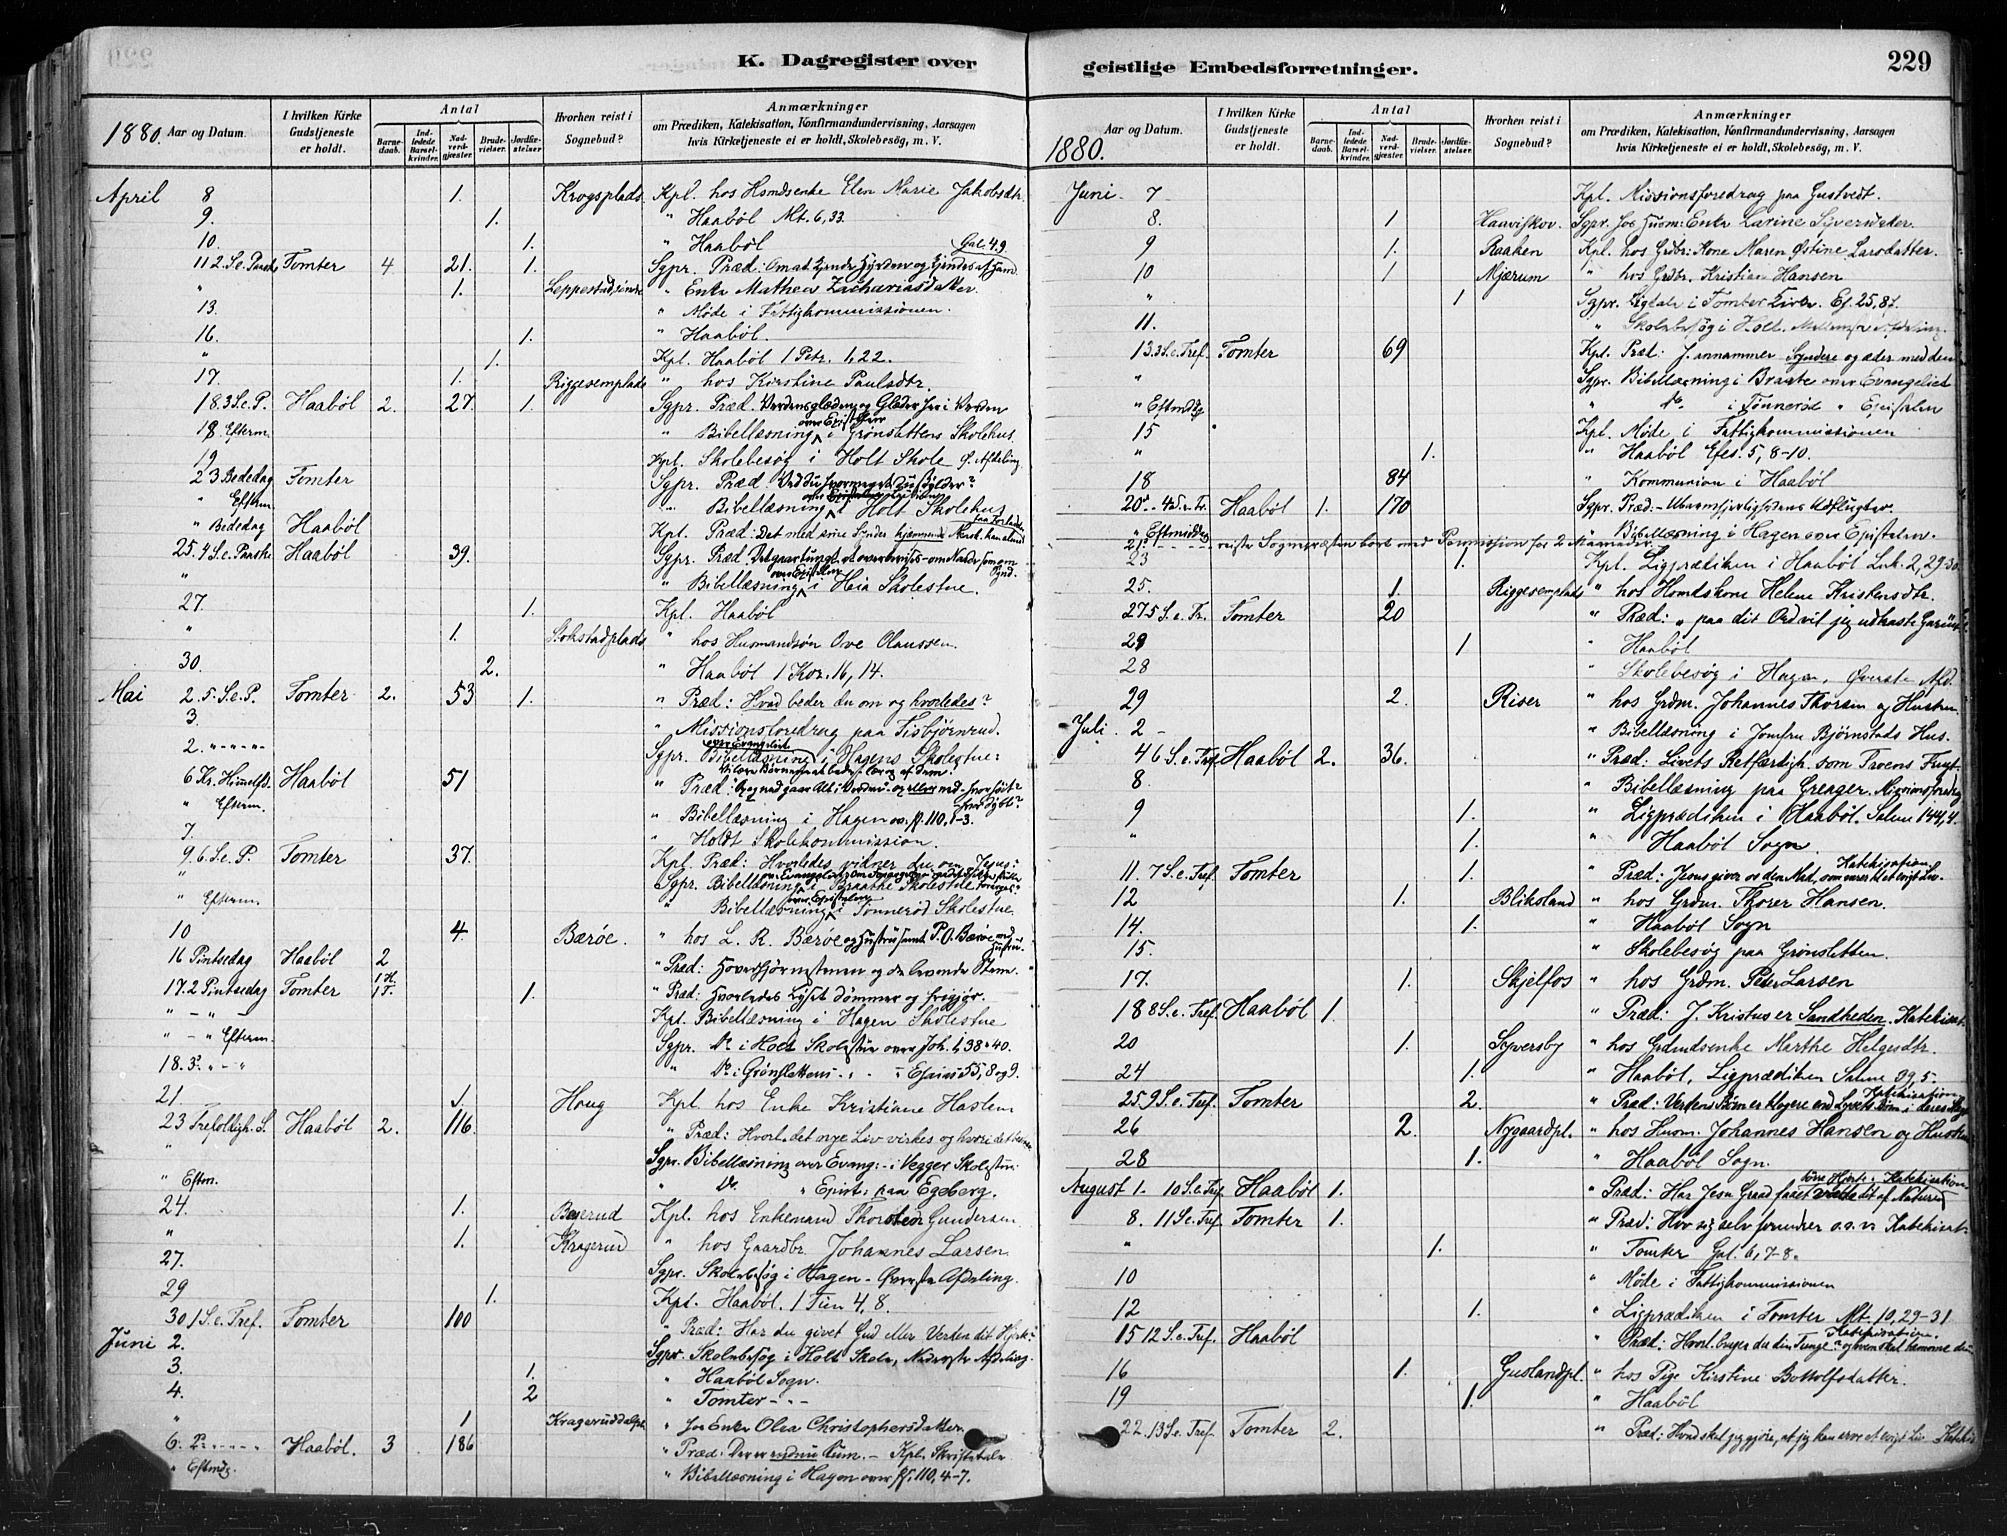 K. Dagregister over
1880.
Aar og Datum.
I hvilken Kirke Gudstjeneste er holdt.
Antal
Barnedaab.
Indledede Barselkvinder.
Nadverdgjæster.
Brudevielser.
Jordfæstelser
Hvorhen reist i Sognebud?
Anmærkninger
om Prædiken, Katekisation, Konfirmandundervisning, Aarsagen
hvis Kirketjeneste ei er holdt, Skolebesøg, m. V.
April 8 1. Krogsplads Kpl. hos Hsmdsenke Elen Marie Jakobsdtr.
9. 1. " Haabøl Mt. 6,33.
10. 1. " Haabøl
11 2. S. e. Paaske Tomter 4 21. 1. Sgpr. Præd:
" 1. " Enke Mathea Zachariasdatter
13. " Møde i Fattigkommissionen.
16. 1. " Haabøl.
" 1. Kpl. Haabøl 1 Petr. 1,22.
17. 1. Riggesemplads " hos Kirstine Paulsdtr.
18. 3 S. e. P. Haabøl 2. 27. 1. Sgpr. Præd. Verdensglæden og Glæder her i Verden
18 Efterm. " Bibellæsning over Epistelen i Grønslettens Skolehus.
19 Kpl. Skolebesøg i Holt Skole Ø. Afdeling
23 Bededag Tomter Sgpr. Præd.
" Efterm " Bibellæsning i Holt Skolehus
" Bededag Haabøl Kpl. Præd:
25. 4 S. e. Paaske Haabøl 39. Sgpr. Præd.
" " Bibellæsning over Epistelen i Heia Skolestue.
27. 1. Kpl. Haabøl
" 1. Sokstadplads " hos Husmandsøn Ove Olaussen.
30. 2. " Haabøl 1 Kor. 16, 14.
Mai 2. 5. S. e. P. Tomter 2. 53 1. " Præd: Hvad beder du om og hvorledes?
3. " Missionsforedrag paa Tisbjørnrud.
2. " Sgpr. Bibellæsning over Evangeliet i Hagens Skolestue:
6 Kr. Himmelfd. Haabøl 51 " Præd:
" Efterm. " Bibellæsning i Hagen ov. Ps. 110, 1-3.
7. " Holdt Skolekommission.
9. 6. S. e. P. Tomter 37. Kpl. Præd: Hvorledes vidner du om Jesus?
" Sgpr. Bibellæsning i Braathe Skolestue
" Efterm. " Bibellæsning over Epistelen i Tønnerød Skolestue.
10 4. Bærøe. " hos L. R. Bærøe og Hustru samt P. O. Bærøe med Hustru.
16 Pintsedag Haabøl 2 " Præd: Hovedhjørnestenen og de levende Stene.
17. 2 Pintsedag Tomter 1 H. 1 T. 1. " Præd: Hvorledes Lyset dømmer og frigjør.
" - " - Kpl. Bibellæsning i Hagen Skolestue
" - " Efterm. Sgpr. Do i Holt Skolestue over Joh. 1, 38-40.
18. 3. " - " " Do. i Grønslettens " - " Esaias 55, 8 og 9.
21. 1. Houg Kpl. hos Enke Kristiane Haslem
23 Trefoldigh. S. Haabøl 2. 116. " Præd: Hvorl. det nye Liv virkes og hvori det
" Sgpr. Bibellæsning over Evang: i Vegger Skolestue
" Eftm. " Do. " Epist: paa Egeberg.
24. 1. Bøjerud Kpl. hos Enkemand Thorsten Gundersen
" 1. Kragerud " hos Gaardbr. Johannes Larsen
27. Sgpr. Skolebesøg i Hagen - Øverste Afdeling.
29 1. Kpl. Haabøl. 1 Tim 4, 8.
30. 1 S. e. Tref. Tomter 100 " Præd: Har du givet Gud eller Verden dit Hjerte?
Juni 2. Sgpr. Skolebesøg i Holt Skole, Nederste Afdeling.
3. 1. " Haabøl Sogn.
4. 2 " Tomter - " -
" 1 Krageruddalpl. " hos Enke Olea Christophersdatter
6. 2 Haabøl. 3 186 " Præd: Der er endnu Rum. - Kpl. Skriftetale
" Eftmdg. " Bibellæsning i Hagen over Ps. 110, 4-7.
geistlige Embedsforretninger.
229
1880.
Aar og Datum.
I hvilken Kirke Gudstjeneste er holdt.
Antal
Barnedaab.
Indledede Barselkvinder.
Nadverdgjæster.
Brudevielser.
Jordfæstelser.
Hvorhen reist i Sognebud?
Anmærkninger
om Prædiken, Katekisation, Konfirmandundervisning, Aarsagen
hvis Kirketjeneste ei er holdt, Skolebesøg, m. V.
Juni 7 Kpl. Missionsforedrag paa Gustvedt.
8. 1 Haaviskov. Sgpr. hos Husm: Enke Karine Syversdatter
9 1. Raaken Kpl. hos Grdbr: Kone Maren Østine Larsdatter.
10 1 Mjærum " hos Grdbr. Kristian Hansen
" 1 Sgpr. Ligtale i Tomter Kirke. Es. 25, 8.
11. " Skolebesøg i Holt. Mellemste Afdeling.
13. 3 S. e. Tref. Tomter 69 Kpl. Præd: J. annammer Syndere og æder med dem
" Sgpr. Bibellæsning i Braate over Evangeliet
" Eftmdg " do. i Tønnerød " Epistelen
15 Kpl. Møde i Fattigkommissionen
" 1. " Haabøl Efes. 5, 8-10.
18 84 " Kommunion i Haabøl
20. 4 S. e. Tr. Haabøl 1. 170 Sgpr. Præd:- Ubarmhjertighedens Udflugter.
" Eftmiddag " Bibellæsning i Hagen over Epistelen.
21. reiste Sognepræsten bort med Permission for 2 Maaneder.
23 1. Kpl. Ligprædiken i Haabøl Luk. 2, 29-30
25. 1. Riggesemplads " hos Hsmdskone Helene Kristensdtr.
27 5 S. e. Tr. Tomter 20 " Præd: "paa dit Ord vil jeg udkaste Garnet"
29 1 " Haabøl
28 " Skolebesøg i Hagen, Øverste Afd.
29 2. Riser " hos Grdm. Johannes Thoresen og Hustru.
Juli 2 " Bibellæsning i Jomfru Bjørnstads Hus.
4 6 S. e. Tref. Haabøl 2. 36. " Præd: Livets Retfærdigh. som Troens Frugt
8. " Bibellæsning paa Greager. Missionsforedrag
9 1. " Ligprædiken i Haabøl. Salme 144, 4.
" 1. " Haabøl Sogn.
11. 7 S. e. Tref. Tomter 1. " Præd: Jesus giver os den Mad, som varer til et evigt Liv. Katekisation
12 1. Bliksland " hos Grdm. Thorer Hansen.
14. 1. " Haabøl Sogn
15. " Skolebesøg paa Grønsletten.
17. 1. Skjelfos " hos Grdm. Peter Larsen
18 8 S. e. Tref. Haabøl 1. " Præd: J. Kristus er Sandheden. Katekisat.
20 1. Syversby " hos Grdmdsenke Marthe Helgesdtr.
24 1. " Haabøl, Ligprædiken Salme 39, 5.
25. 9 S. e. Tref. Tomter 2. " Præd: Katekisation
26 2. Nygaardpl. " hos Husm. Johannes Hansen og Hustru
28 1. " Haabøl Sogn.
August 1. 10 S. e. Tref. Haabøl 1. " Præd: Har Jesu Graad faaet vækket dit af Naturen Katekisation
8. 11 S. e. Tref. Tomter 1. " Præd: Hver sig selv fornedrer o. s. v. Katekisat.
" 1. " Tomter Gal. 6, 7-8.
10 " Møde i Fattigkommissionen
12 1. " Ligprædiken i Tomter Mt. 10, 29-31
15 12 S. e. Tref. Haabøl " Præd: Hvorl. bruger du din Tunge? Katekisation.
16 1. Guslandpl. " hos Pige Kirstine Bottolfsdatter.
19 1. " Haabøl
22. 13 S. e. Tref. Tomter 2. " Præd: Hvad skal jeg gjøre, at jeg kan arve et evigt Liv